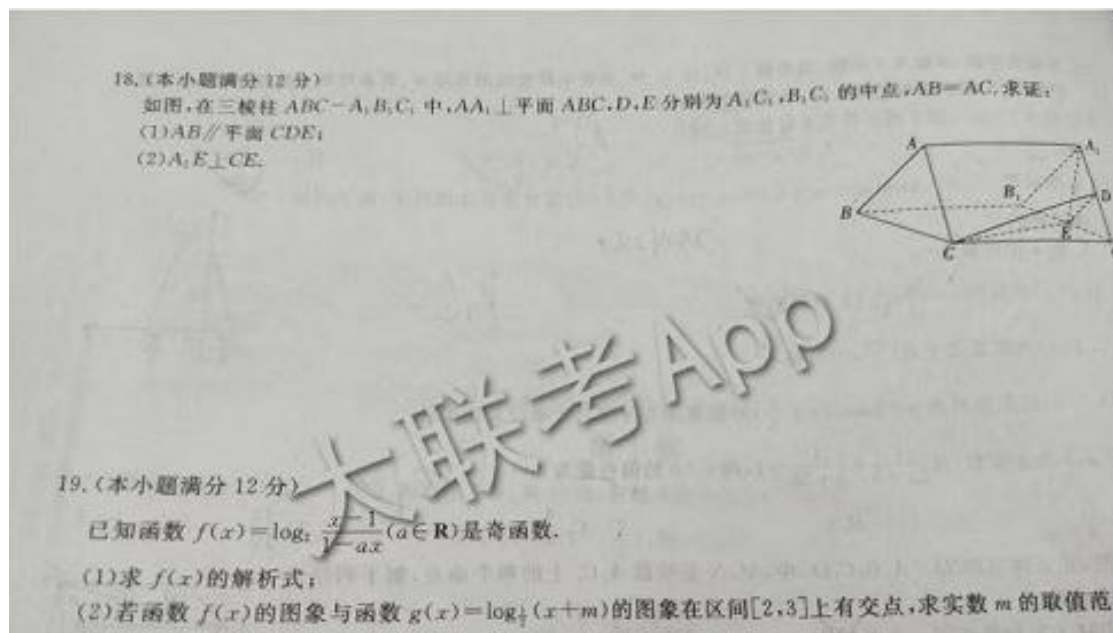 18.(本小题满分12分)
如图,在三棱柱ABC-A₁B₁C₁中,AA₁⊥平面ABC,D,E分别为A₁C₁,B₁C₁的中点,AB=AC.求证:
(1)AB∥平面CDE;
(2)A₁E⊥CE.
A
A₁
B₁
D
B
E
C
大联考App
19.(本小题满分12分)
已知函数 f(x)=log₂ \frac{x-1}{1-ax}(a∈R)是奇函数.
(1)求 f(x)的解析式;
(2)若函数 f(x)的图象与函数 g(x)=log_{\frac{1}{2}}(x+m)的图象在区间[2,3]上有交点,求实数 m 的取值范